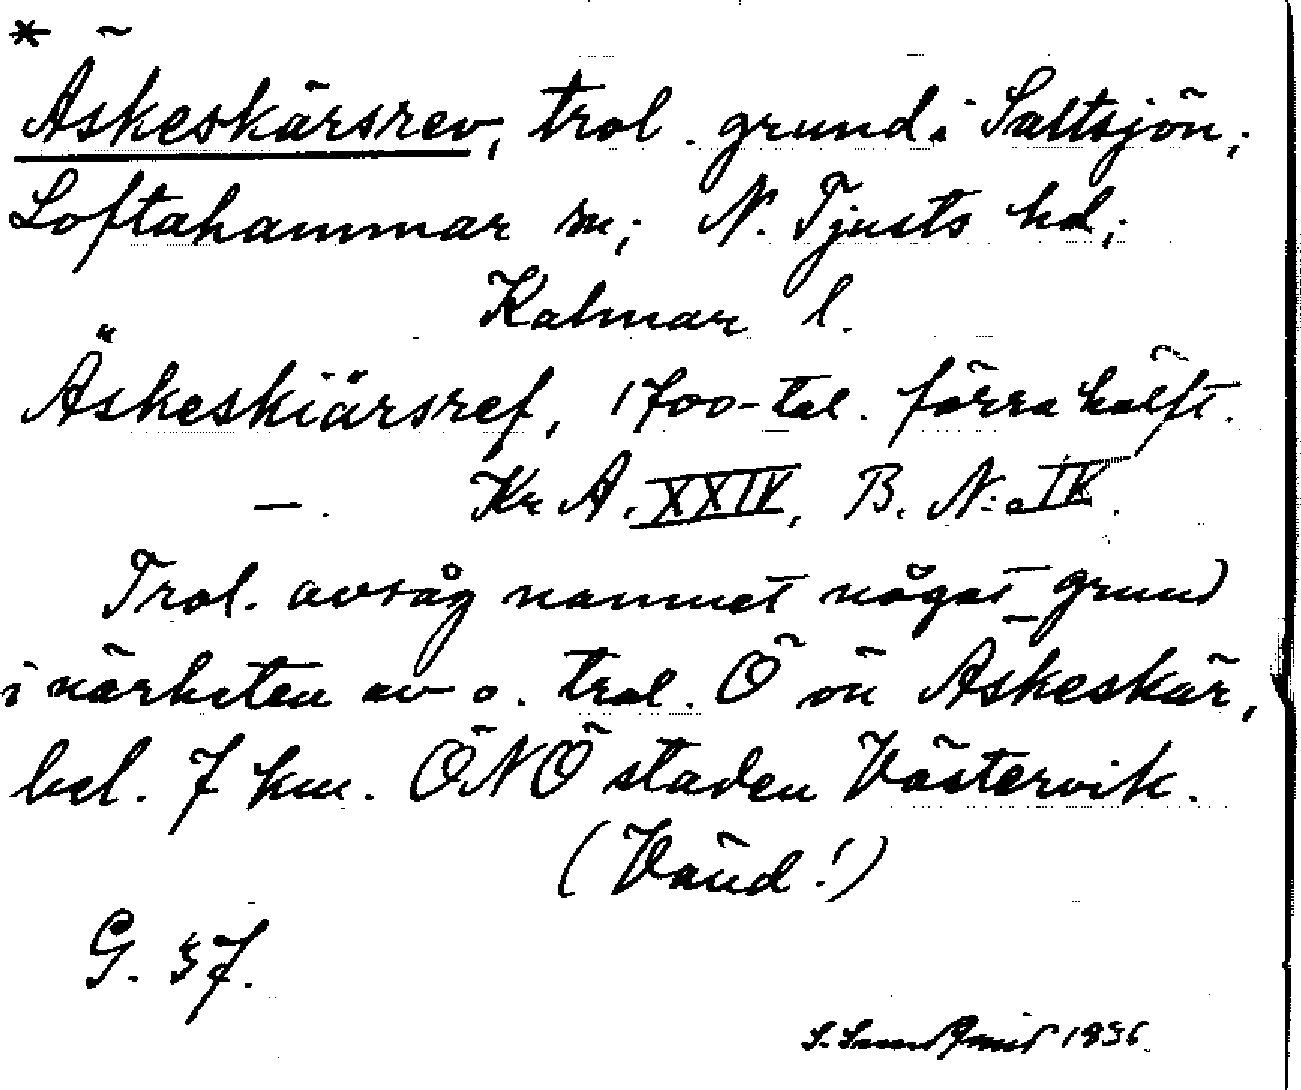 * Äskeskärsrev, trol. grund i Saltsjön;
Loftahammar sn; N. Tjusts hd;
Kalmar l.
Äskeskiärsref, 1700-tal. förra hälft.
—. Kr. A. XXIV, B. N:o IV.
Trol. avsåg namnet något grund
i närheten av o. trol. Ö ön Äskeskär,
bel. 7 km. ÖNÖ staden Västervik.
(Vänd!)
G. 37.
1936.